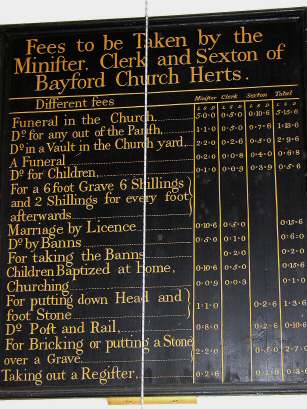 Fees to be Taken by the
Minifter, Clerk and Sexton of
Bayford Church Herts.
Different fees Minifter Clerk Sexton Total
Funeral in the Church, 5=0=0 0=5=0 0=10=6 5=15=6
Do. for any out of the Parifh, 1=1=0 0=5=0 0=7=6 1=13=6
Do. in a Vault in the Church yard, 2=2=0 0=2=6 0=5=0 2=9=6
A Funeral 0=2=0 0=0=8 0=4=0 0=6=8
Do. for Children, 0=1=0 0=0=9 0=3=9 0=5=6
For a 6 foot Grave 6 Shillings
and 2 Shillings for every foot
afterwards
Marriage by Licence 0=10=6 0=5=0 0=15=6
Do. by Banns 0=5=0 0=1=0 0=6=0
For taking the Banns 0=2=0 0=2=0
Children Baptized at home, 0=10=6 0=5=0 0=15=6
Churching 0=0=9 0=0=3 0=1=0
For putting down Head and
foot Stone 1=1=0 0=2=6 1=3=6
Do. Poft and Rail, 0=8=0 0=2=6 0=10=6
For Bricking or putting a Stone
over a Grave 2=2=0 0=5=0 2=7=0
Taking out a Regifter. 0=2=6 0=1=0 0=3=6